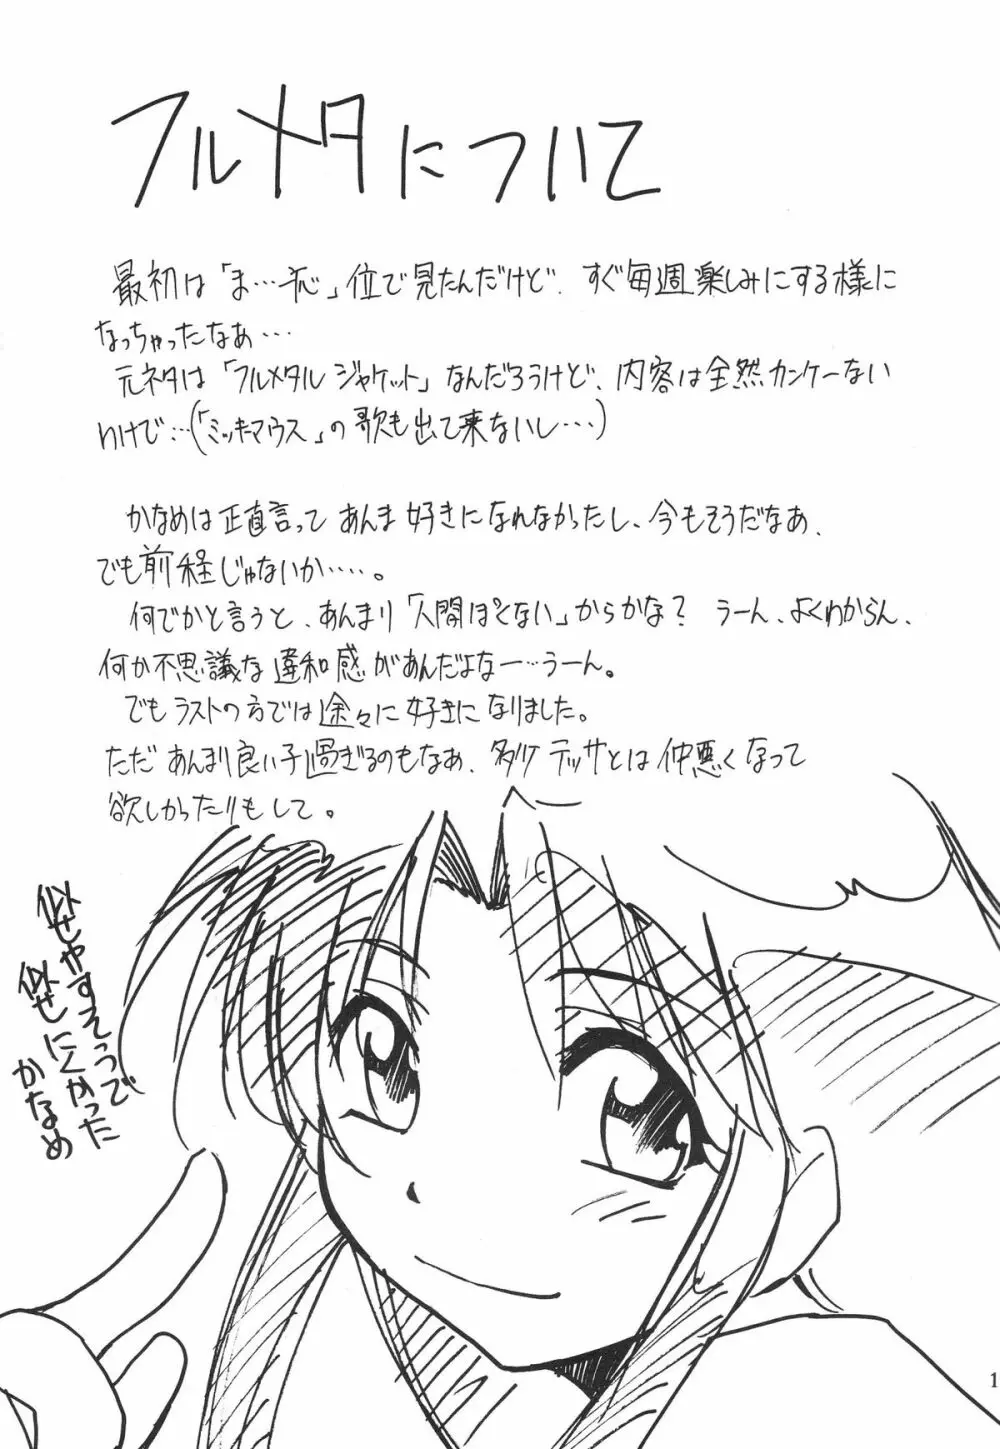 フルメタについて
最初は「ま…一応」位で見たんだけど、すぐ毎週楽しみにする様に
なっちゃったなぁ…
元ネタは「フルメタル ジャケット」なんだろうけど、内容は全然カンケーない
わけで…(「ミッキーマウス」の歌も出て来ないし…)
かなめは正直言って あんま好きになれなかったし、今もそうだなあ、
でも前程じゃないか……。
何でかと言うと、あんまり「人間ぽくない」からかな？ うーん、よくわからん、
何か不思議な違和感があんだよなー…うーん。
でもラストの方では途々に好きになりました。
ただ あんまり良い子過ぎるのもなぁ、多少 テッサとは仲悪くなって
欲しかったりもして。
似せやすそうで
似せにくかった
かなめ
1